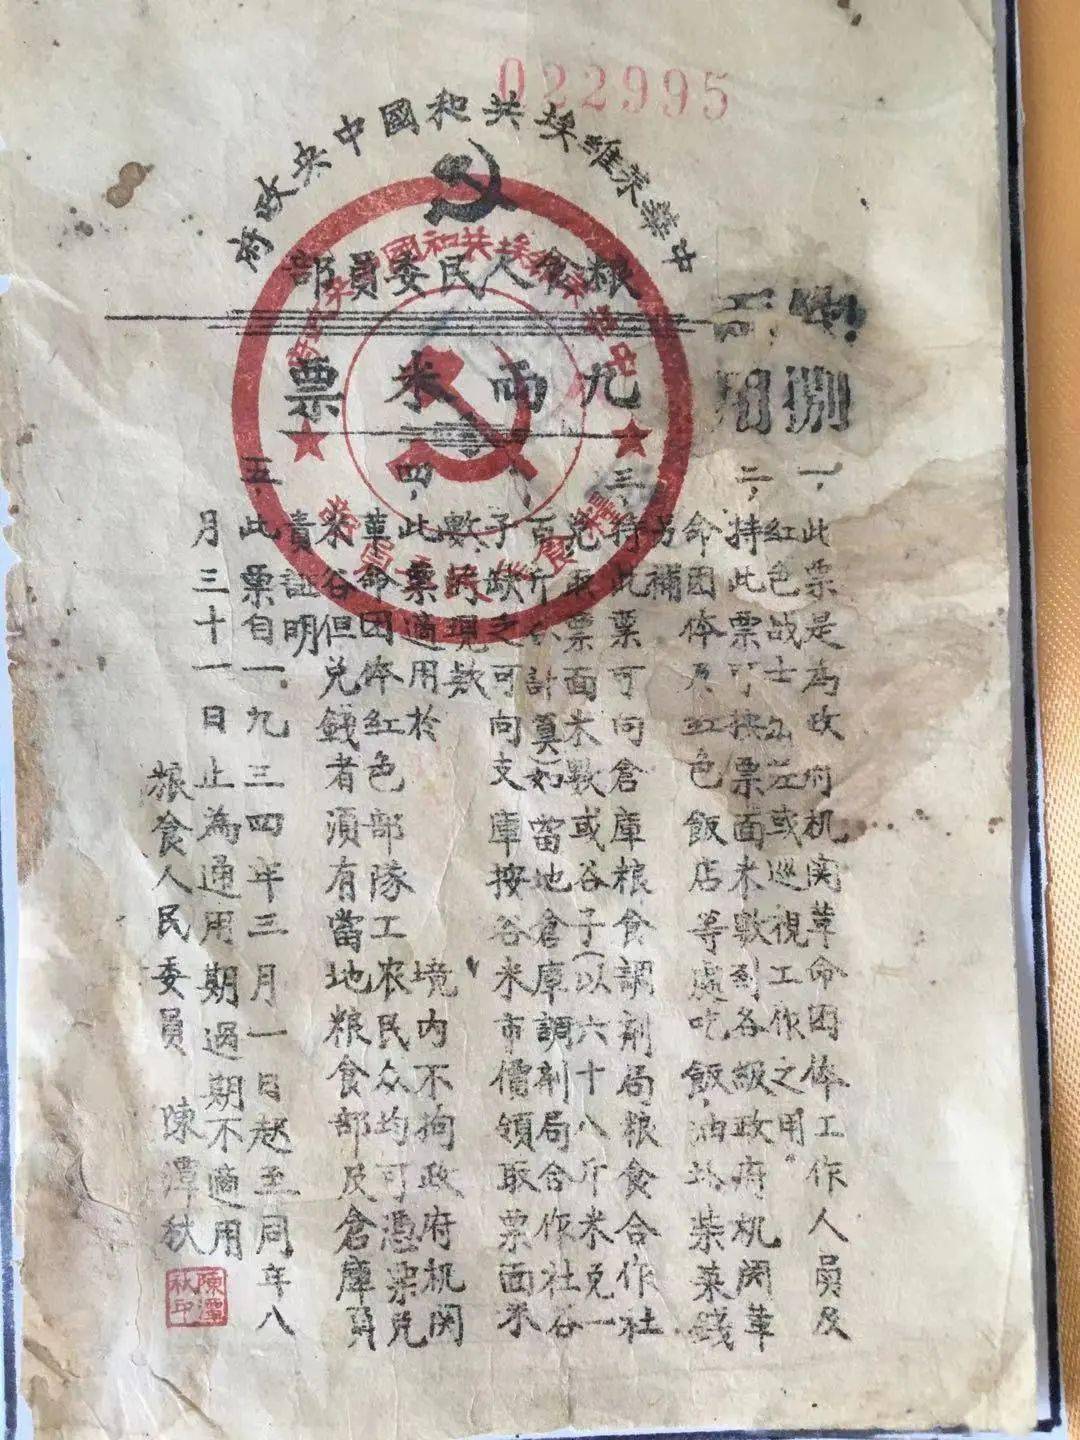 022995
中華苏維埃共和國中央政府
粮食人民委員部
九兩米票
捌
一，此票是為政府机関革命团体工作人員及
红色战士出差或巡視工作之用。
二，持此票可按票面米數到各級政府机関革
命团体及红色飯店等處吃飯，油塩柴菜錢
另補
三，持此票可向倉庫粮食調剂局粮食合作社
兑取票面米數或谷子（以六十八斤米兑一
百斤谷計算）如當地倉庫調剂局合作社谷
子缺乏可向支庫按谷米市價領取票面米
數的現款
四，此票適用於 境内不拘政府机関
革命团体红色部隊工农民众均可憑票兑
米谷但兑錢者須有當地粮食部及倉庫負
責証明
五，此票自一九三四年三月一日起至同年八
月三十一日止為通用期過期不適用
粮食人民委員 陳潭秋
陳潭秋印